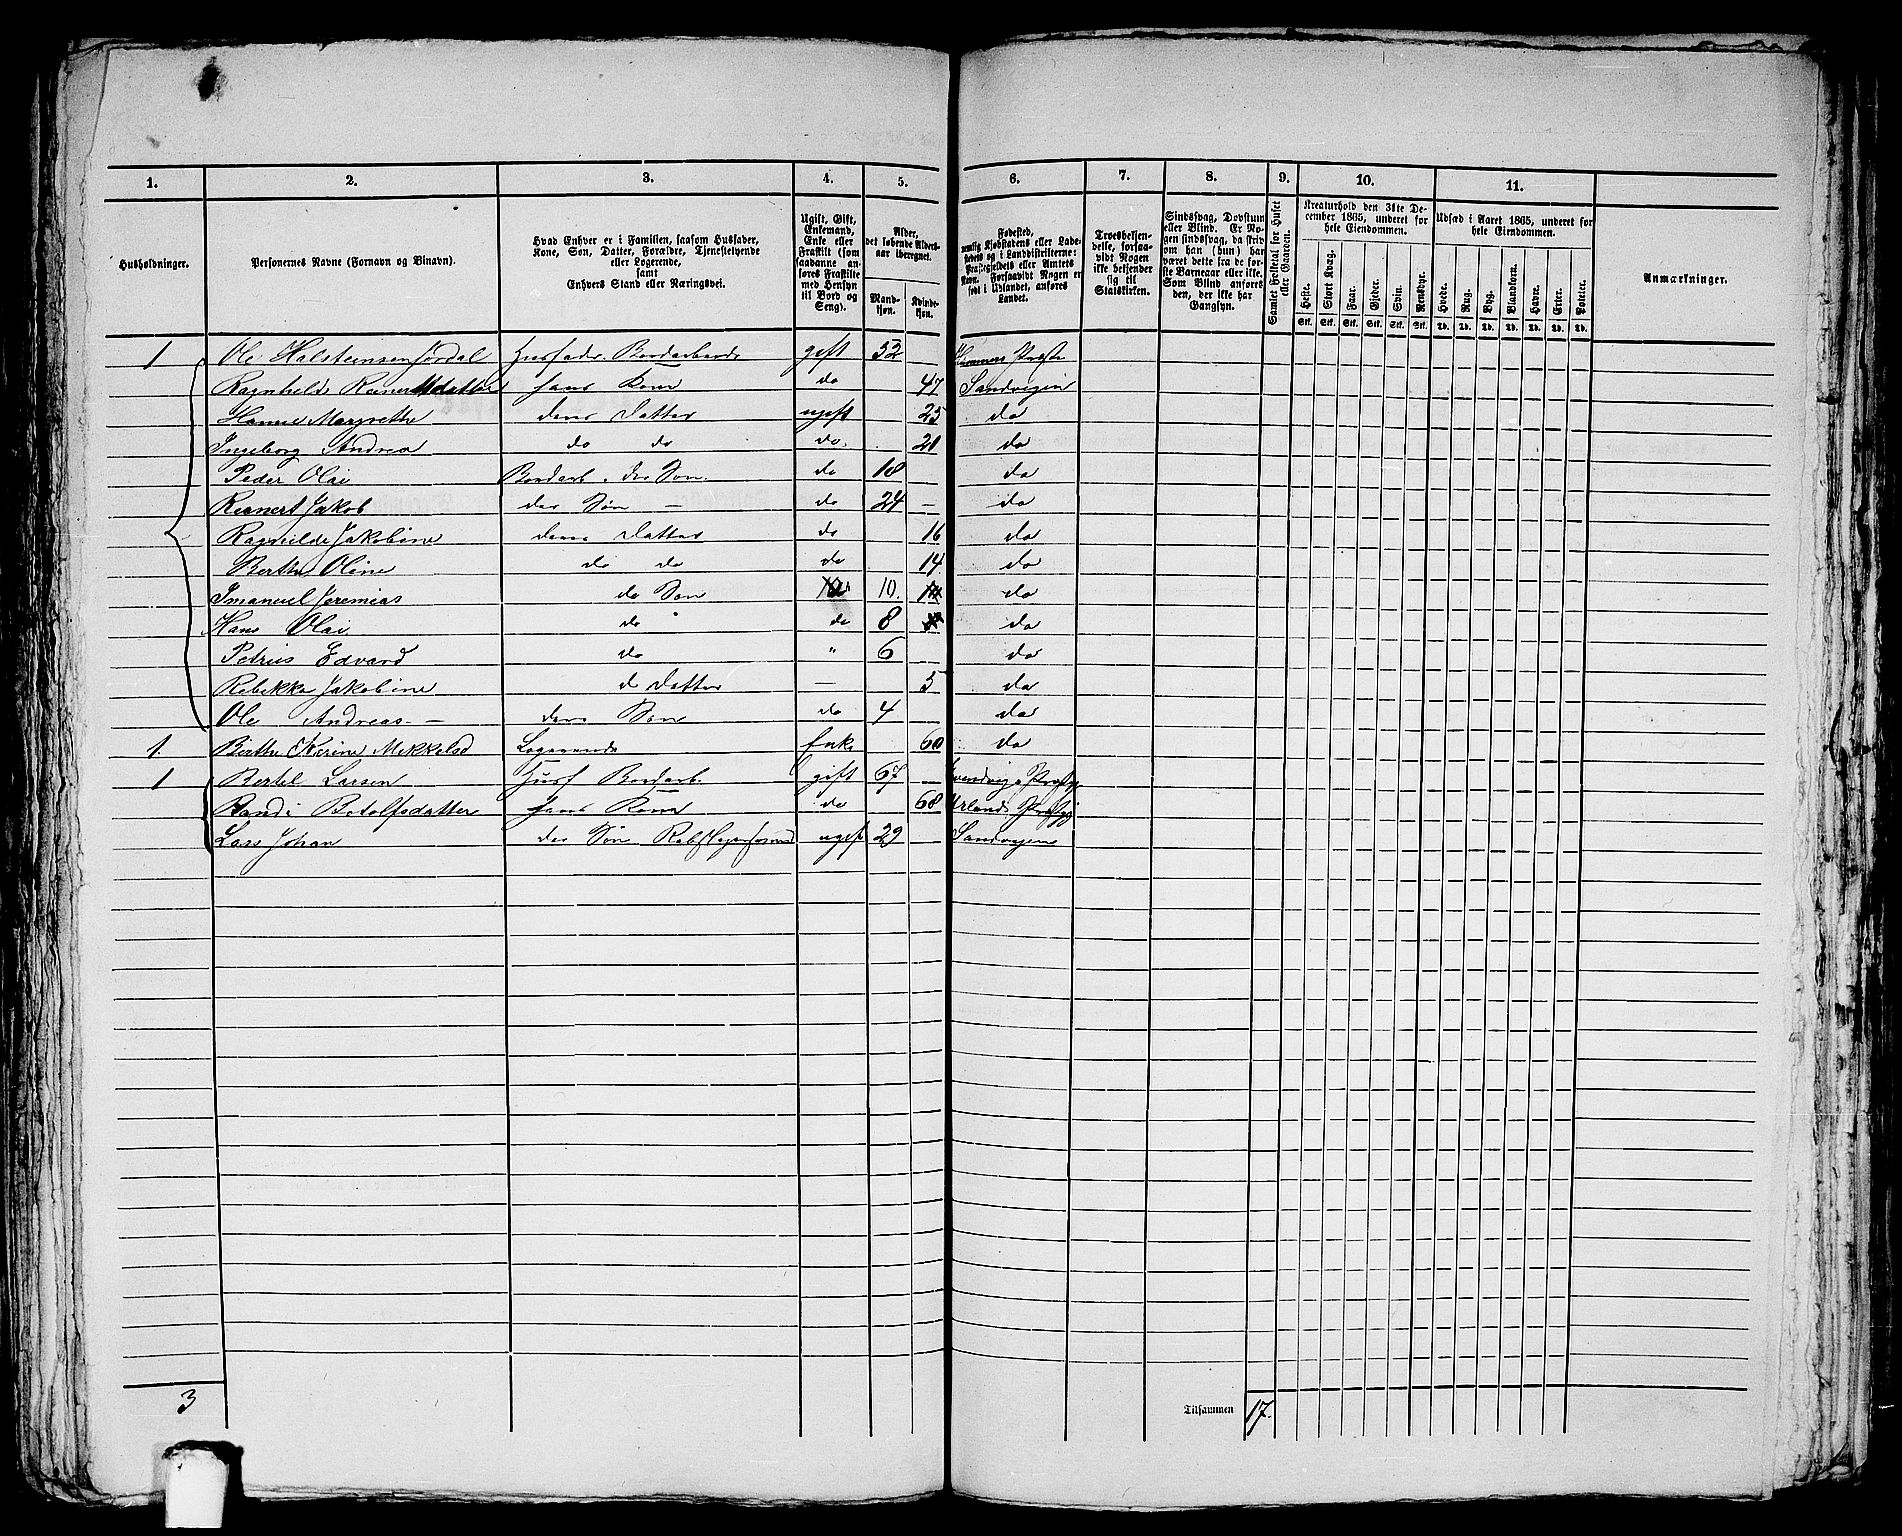 1. 2. 3. 4. 5. 6. 7. 8. 9. 10. 11.
Husholdninger.
Personernes Navne (Fornavn og Binavn).
Hvad Enhver er i Familien, saasom Husfader,
Kone, Søn, Datter, Forældre, Tjenestetyende
eller Logerende,
samt
Enhvers Stand eller Næringsvei.
Ugift, Gift,
Enkemand,
Enke eller
Fraskilt (som
saadanne an-
føres Fraskilte
med Hensyn
til Bord og
Seng).
Alder,
det løbende Alders-
aar iberegnet.
Mand-
kjøn.
Kvinde-
kjøn.
Fødested,
nemlig Kjøbstadens eller Lade-
stedets og i Landdistrikterne:
Præstegjeldets eller Amtets
Navn. Forsaavidt Nogen er
født i Udlandet, anføres
Landet.
Troesbekjen-
delse, forsaa-
vidt Nogen
ikke bekjender
sig til
Statskirken.
Sindssvag, Døvstum
eller Blind. Er No-
gen sindssvag, da skriv
om han (hun) har
været dette fra de før-
ste Barneaar eller ikke.
Som Blind anføres
den, der ikke har
Gangsyn.
Samlet Folketal for Huset
eller Gaarden.
Kreaturhold den 31te De-
cember 1865, underet for
hele Eiendommen.
Heste. Stort Kvæg. Faar. Gjeder. Svin. Rensdyr.
Stk. Stk. Stk. Stk. Stk. Stk.
Udsæd i Aaret 1865, underet for
hele Eiendommen.
Hvede. Rug. Byg. Blandkorn. Havre. Erter. Poteter.
Td. Td. Td. Td. Td. Td. Td.
Anmærkninger.
1 Ole Halsteinsen Jordal gift 52
Ragnhilde hans Kone do 47 Sandvigen
Hanne Margrethe deres Datter ugift 25 do
Ingeborg Andrea do do do 20 do
Peder Olai Bordarb. des Søn. do 18 do
Reinert Jakob des Søn — do 24 — do
Ragnilde Jakobine deres Datter do 16 do
Berthe Oline do do do 14 do
Imanuel Jeremias do Søn 10. do
Hans Olai do do 8 do
Petrus Edvard do " 6 do
Rebekka Jakobine d Datter — 5 do
Ole Andreas — deres Søn do 4 do
1. Berthe Kerine Mikkelsd Logerende Enke 60 do
1 Bertel Larsen Husf Bordarb. gift 67 —
Randi Botolfsdatter hans Kone do 68
Lars Johan des Søn ugift 29 Sandvigen
3
Tilsammen 17.